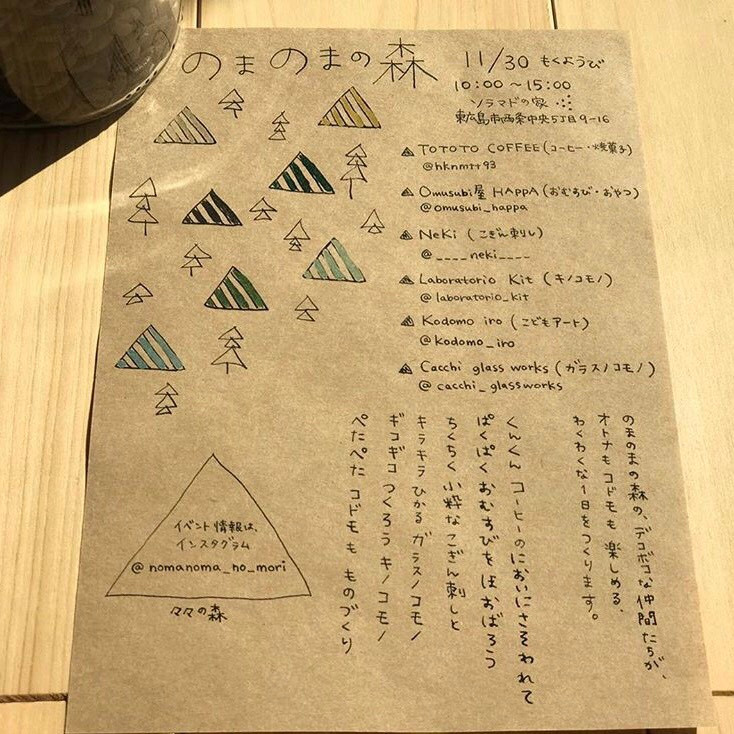 のまのまの森
11/30 もくようび
10:00～15:00
ソラマドの家
東広島市西条中央5丁目9-16
TOTOTO COFFEE(コーヒー・焼菓子)
@hknmtt93
Omusubi屋 HAPPA(おむすび・おやつ)
@omusubi_happa
NeKi(こぎん刺し)
@____neki____
Laboratorio Kit(キノコモノ)
@laboratorio_kit
Kodomo iro(こどもアート)
@kodomo_iro
Cacchi glass works(ガラスノコモノ)
@cacchi_glassworks
のまのまの森の、デコボコな仲間たちが、
オトナもコドモも楽しめる、
わくわくな1日をつくります。
くんくん コーヒーのにおいにさそわれて
ぱくぱくおむすびをほおばろう
ちくちく 小粋なこぎん刺しと
キラキラ ひかる ガラスノコモノ
ギコギコ つくろう キノコモノ
ぺたぺた コドモも ものづくり
イベント情報は、
インスタグラム
@nomanoma_no_mori
々々の森